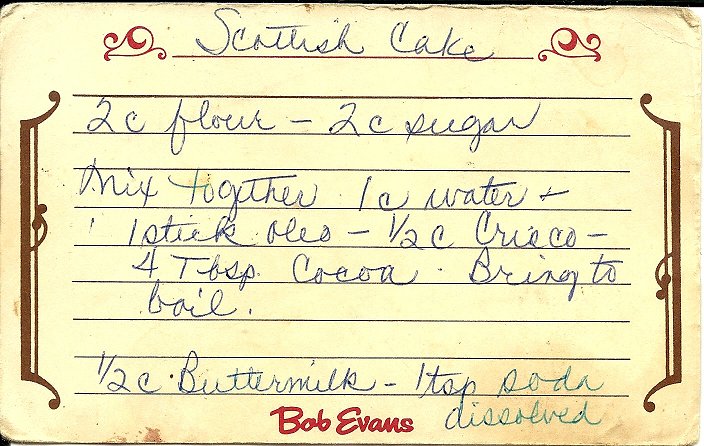 Scottish Cake
2c flour - 2c sugar
Mix together 1c water +
1 stick oleo - 1/2 c Crisco -
4 Tbsp. Cocoa. Bring to
boil.
1/2 c. Buttermilk - 1 tsp soda
dissolved
Bob Evans